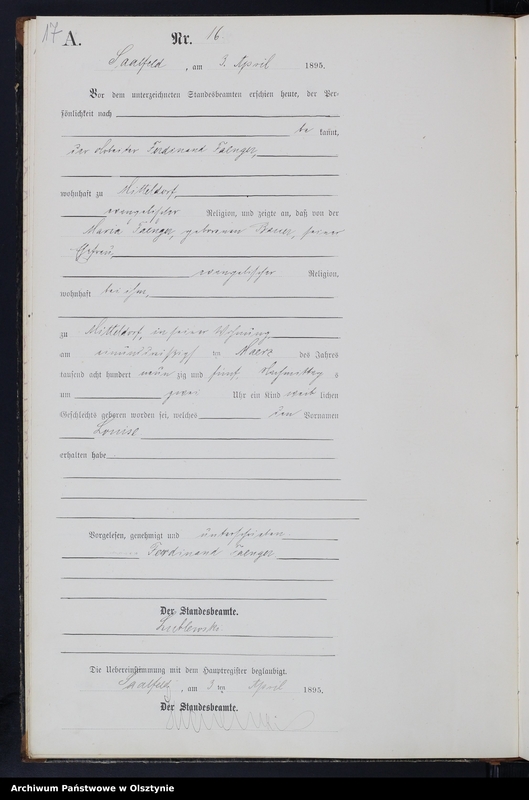 17
A.
Nr. 16
Saalfeld, am 3. April 1895.
Vor dem unterzeichneten Standesbeamten erschien heute, der Per-
sönlichkeit nach
be kannt,
der Arbeiter Ferdinand Faenger,
wohnhaft zu Mitteldorf,
evangelischer Religion, und zeigte an, daß von der
Maria Faenger, geborenen Bauer, seiner
Ehefrau,
evangelischer Religion,
wohnhaft bei ihm,
zu Mitteldorf, in seiner Wohnung
am einunddreißigsten Maerz des Jahres
tausend acht hundert neun zig und fünf, Nachmittag s
um zwei Uhr ein Kind weib lichen
Geschlechts geboren worden sei, welches den Vornamen
Louise
erhalten habe
Vorgelesen, genehmigt und unterschrieben
Ferdinand Faenger
Der Standesbeamte.
Die Uebereinstimmung mit dem Hauptregister beglaubigt.
Saalfeld, am 3 ten April 1895.
Der Standesbeamte.
Archiwum Państwowe w Olsztynie